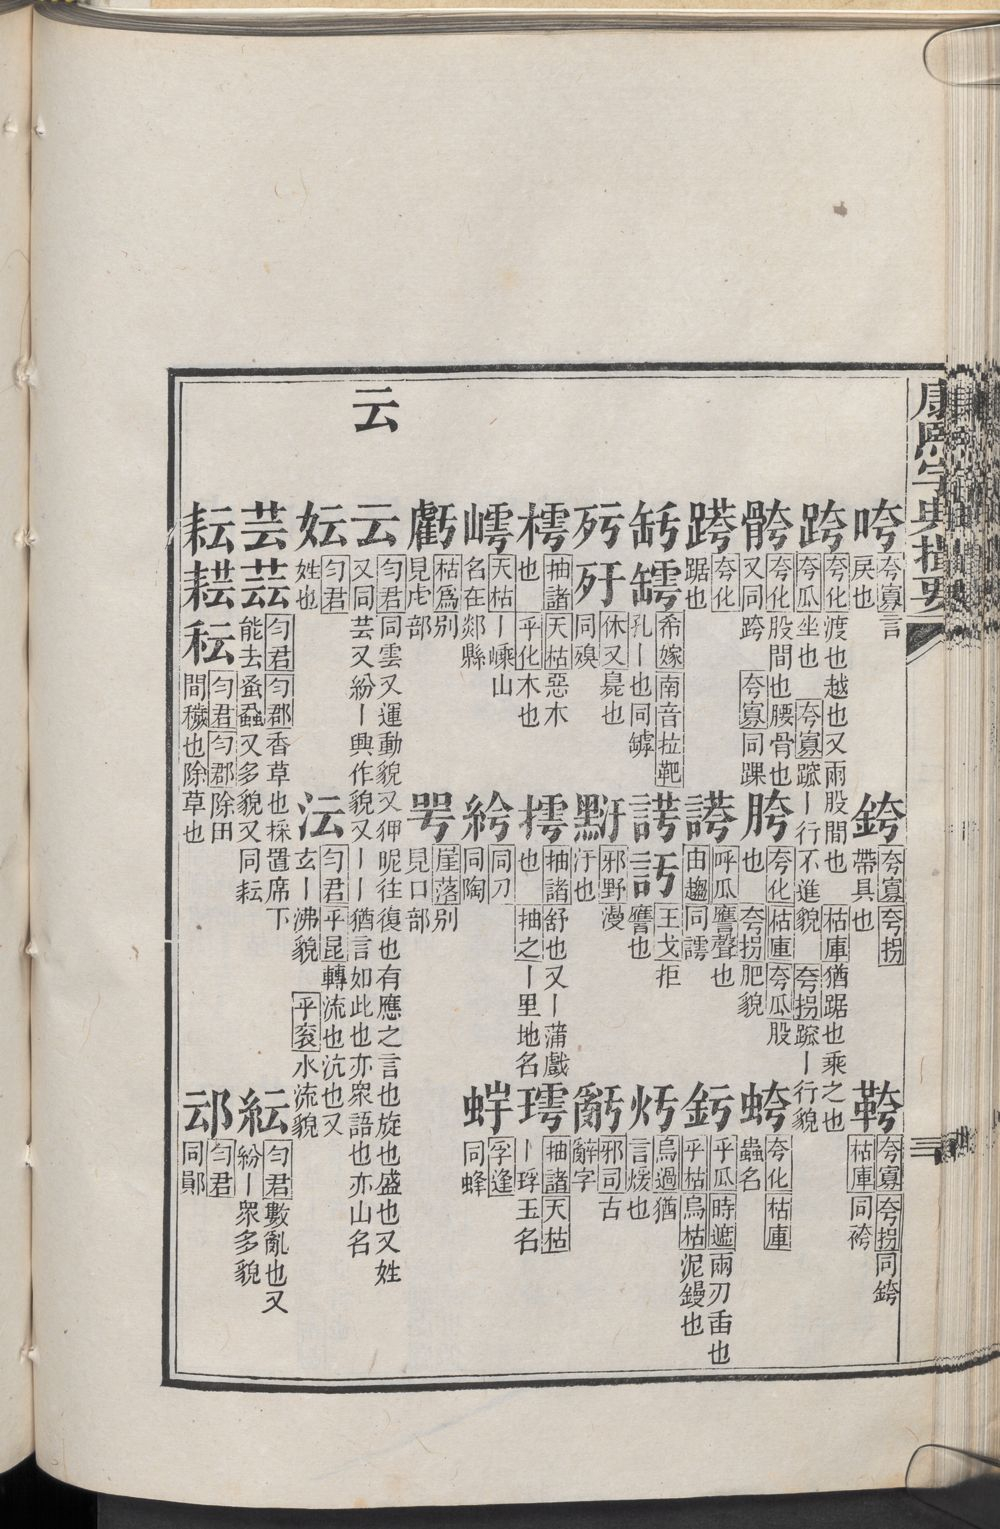 康熙字典撮要
三
咵 夸寡言戾也
銙 夸寡夸拐帶具也
鞛 夸寡夸拐同銙枯庫同袴
跨 夸化渡也越也又兩股間也 枯庫猶踞也乘之也夸瓜坐也 夸寡踪丨行不進貌 夸拐踪丨行貌
骻 夸化股間也腰骨也又同跨 夸寡同踝
胯 夸化枯庫夸瓜股也 夸拐肥貌
蛂 夸化枯庫蟲名
踻 夸化踞也
誇 呼瓜譍聲也由趨同謣
釫 乎瓜時遮兩刃臿也乎枯烏枯泥鏝也
𦈢 罅 希嫁南音拉靶孔丨也同罅
謣 訏 王戈拒譍也
㶨 烏過猶言煖也
歹 歺 休又臰也同殠
䵟 邪野漫汙也
亂 邪司古辭字
樗 抽諸天枯惡木也 乎化木也
摴 抽諸舒也又丨蒲戲也 抽之丨里地名
㻯 抽諸天枯丨琈玉名
嶀 天枯丨嵊山名在郯縣
綔 同刀同陶
蛑 孚逢同蜂
虧 枯爲別見虍部
咢 崖落別見口部
云
云 勻君同雲又運動貌又狎昵往復也有應之言也旋也盛也又姓又同芸又紛丨興作貌又丨丨猶言如此也亦眾語也亦山名
妘 勻君姓也
沄 勻君乎昆轉流也沆也又玄丨沸貌 乎袞水流貌
芸 蕓 勻君勻郡香草也採置席下能去蚤蝨又多貌又同耘
紜 勻君數亂也又紛丨眾多貌
耘 䎣 秐 勻君勻郡除田間穢也除草也
䢵 勻君同鄖